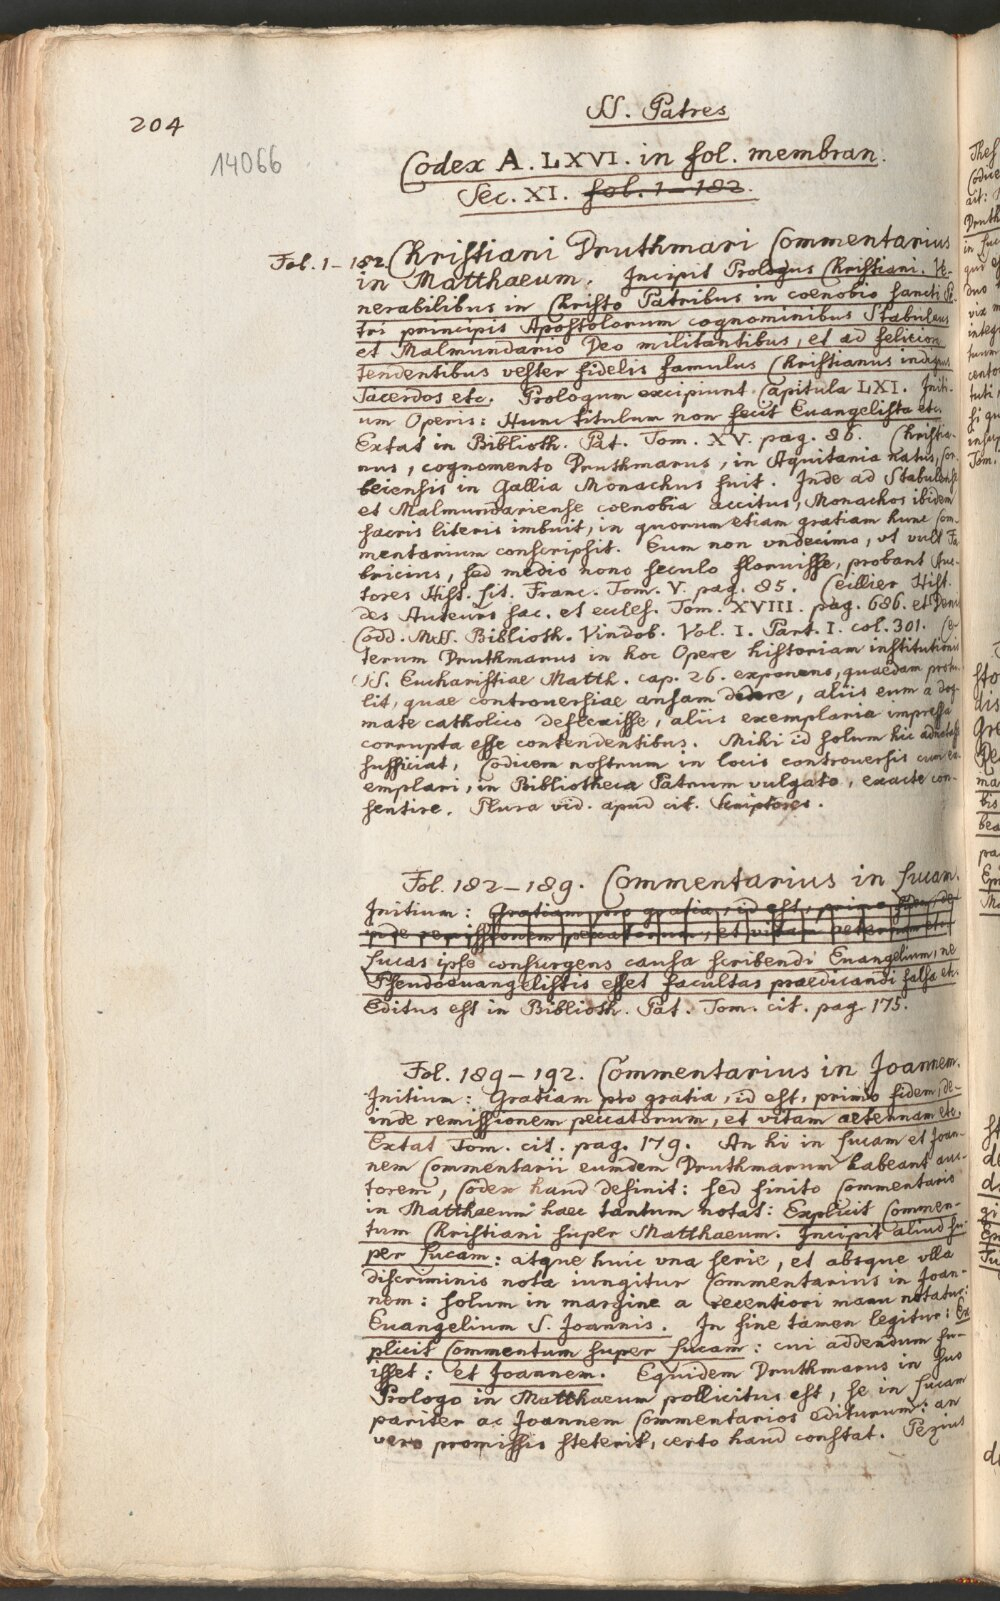 204
SS. Patres
14066
Codex A. LXVI. in fol. membran.
Sec. XI. fol. 1-182.
Fol. 1-182. Christiani Druthmari Commentarius
in Matthaeum. Incipit Prologus Christiani. Ve-
nerabilibus in Christo Patribus in coenobio sancti Pe-
tri principis Apostolorum cognominibus Stabulaus
et Malmundario Deo militantibus, et ad feliciora
tendentibus vester fidelis famulus Christianus indignus
Sacerdos etc. Prologum excipiunt Capitula LXI. Initi-
um Operis: Hunc titulum non fecit Euangelista etc.
Extat in Biblioth. Pat. Tom. XV. pag. 86. Christia-
nus, cognomento Druthmarus, in Aquitania natus, Cor-
beiensis in Gallia Monachus fuit. Inde ad Stabulense
et Malmundariense coenobia accitus, Monachos ibidem
sacris literis imbuit, in quorum etiam gratiam hunc Com-
mentarium conscripsit. Eum non vndecimo, vt vult Fa-
bricius, sed medio nono seculo floruisse, probant Auc-
tores Hist. lit. Franc. Tom. V. pag. 85. Ceillier Hist.
des Auteurs sac. et eccles. Tom. XVIII. pag. 686. et Denis
Codd. MSS. Biblioth. Vindob. Vol. I. Part. I. col. 301. Ce-
terum Druthmarus in hoc Opere historiam institutionis
SS. Eucharistiae Matth. cap. 26. exponens, quaedam protu-
lit, quae controversiae ansam dedere, aliis eum a dog-
mate catholico deflexisse, aliis exemplaria impressa
corrupta esse contendentibus. Mihi id solum hic adnotasse
sufficiat, Codicem nostrum in locis controversis cum ex-
emplari, in Bibliotheca Patrum vulgato, exacte con-
sentire. Plura vid. apud cit. Scriptores.
Fol. 182-189. Commentarius in Lucam.
Initium: Gratiam pro gratia, id est, primo fidem, de-
inde remissionem peccatorum, et vitam aeternam etc.
Lucas ipse consurgens causa scribendi Euangelium, ne
Pseudoeuangelistis esset facultas praedicandi falsa etc.
Editus est in Biblioth. Pat. Tom. cit. pag. 175.
Fol. 189-192. Commentarius in Joannem.
Initium: Gratiam pro gratia, id est, primo fidem, de-
inde remissionem peccatorum, et vitam aeternam etc.
Extat Tom. cit. pag. 179. An hi in Lucam et Joan-
nem Commentarii eumdem Druthmarum habeant auc-
torem, Codex haud definit: sed finito Commentario
in Matthaeum haec tantum notat: Explicit Commen-
tum Christiani super Matthaeum. Incipit aliud su-
per Lucam: atque huic vna serie, et absque vlla
discriminis nota iungitur Commentarius in Joan-
nem: solum in margine a recentiori manu notatur:
Euangelium S. Joannis. In fine tamen legitur: Ex-
plicit Commentum super Lucam: cui addendum fu-
isset: et Joannem. Equidem Druthmarus in suo
Prologo in Matthaeum pollicitus est, se in Lucam
pariter ac Joannem Commentarios editurum: an
vero promissis steterit, certo haud constat. Pezius